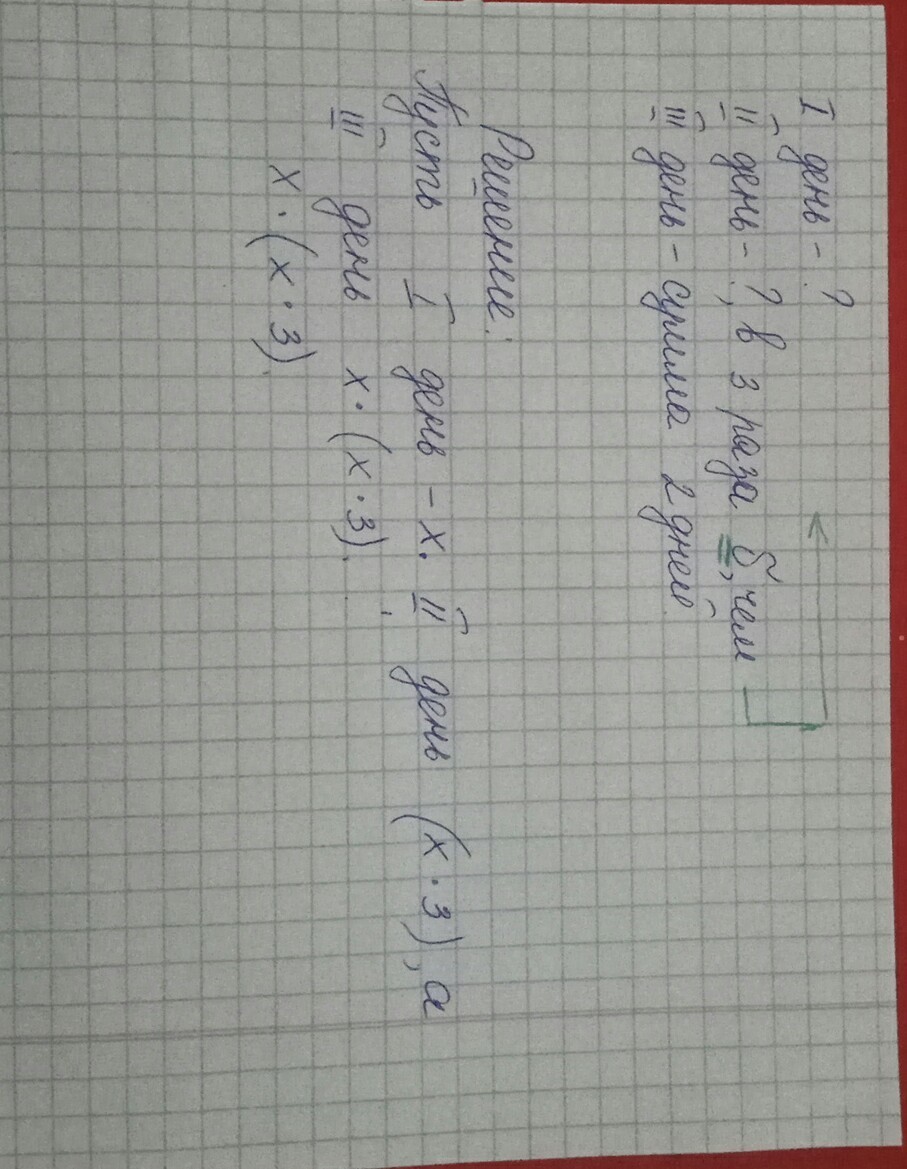 I день - ?
II день - ?, в 3 раза б, чем
III день - сумма 2 дней.
Решение.
Пусть I день - x. II день (x · 3), а
III день x · (x · 3).
x · (x · 3).